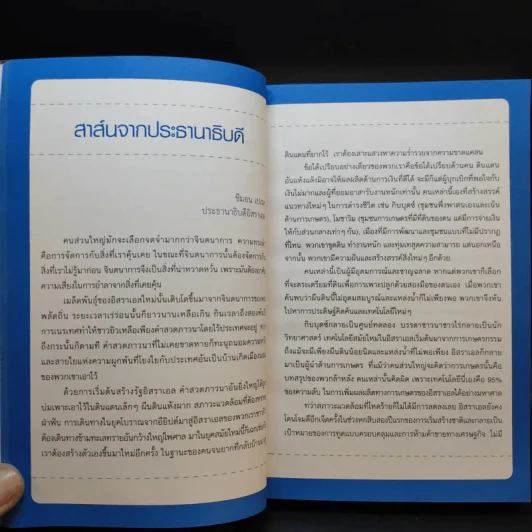 สาส์นจากประธานาธิบดี
ชิมอน เปเรส
ประธานาธิบดีอิสราเอล
คนส่วนใหญ่มักจะเลือกจดจำมากกว่าจินตนาการ ความทรงจำ
คือการจัดการกับสิ่งที่เราคุ้นเคย ในขณะที่จินตนาการนั้นต้องจัดการกับ
สิ่งที่เราไม่รู้มาก่อน จินตนาการจึงเป็นสิ่งที่น่าหวาดหวั่น เพราะมันต้องแลกกับ
ความเสี่ยงในการอำลาจากสิ่งที่เคยคุ้น
เมล็ดพันธุ์ของอิสราเอลใหม่นั้นเติบโตขึ้นมาจากจินตนาการของ
พลัดถิ่น ระยะเวลาเร่ร่อนนั้นก็ยาวนานเหลือเกิน กินเวลาถึงสองพัน
การเนรเทศทำให้ชาวยิวเหลือเพียงคำสวดภาวนาโดยไร้ประเทศจะอยู่
ถึงกระนั้นก็ตามที คำสวดภาวนาที่ไม่เคยขาดหายก็ทะนุถนอมความหวัง
และสายใยแห่งความผูกพันที่โยงใยกับประเทศอันเป็นบ้านเกิดเมืองนอน
ของพวกเขาเอาไว้
ด้วยการเริ่มต้นสร้างรัฐอิสราเอล คำสวดภาวนาอันยิ่งใหญ่ได้ถูก
บ่มเพาะเอาไว้ในดินแดนเล็กๆ ผืนดินแห้งผาก สภาวะแวดล้อมที่ต้อง
ฝ่าฟัน การเดินทางในยุคโบราณจากอียิปต์มาสู่อิสราเอลของพวกเรา
ต้องเดินทางข้ามทะเลทรายอันกว้างใหญ่ไพศาล มาในยุคสมัยใหม่นี้ก็
เราต้องสร้างตัวเองขึ้นมาใหม่อีกครั้ง ในฐานะของคนจนยากที่กลับบ้าน
ดินแดนที่ยากไร้ เราต้องเสาะแสวงหาความร่ำรวยจากความขาดแคลน
ข้อได้เปรียบอย่างเดียวของพวกเราคือข้อได้เปรียบด้านคน ดินแดน
อันแห้งแล้งมิอาจให้ผลผลิตด้านการเงินที่ดีได้ จะมีก็แต่ผู้บุกเบิกที่พอใจกับ
เงินไม่มากและผู้ที่ยอมอาสารับงานหนักเท่านั้น คนเหล่านี้เองที่สร้างสรรค์
แนวทางใหม่ๆ ในการดำรงชีวิต เช่น กิบบุตซ์ (ชุมชนพึ่งพาตนเองและเน้น
ด้านการเกษตร), โมชาวิม (ชุมชนการเกษตรที่มีที่ดินของตน แต่มีการจ่ายเงิน
ให้กับส่วนกลางเท่าๆ กัน), เมืองที่มีการพัฒนาและชุมชนแบบที่ไม่มีปรากฏ
ที่ไหน พวกเขาขุดดิน ทำงานหนัก และทุ่มเทสุดความสามารถ แต่นอกเหนือ
จากนั้น พวกเขามีความฝันและสร้างสรรค์สิ่งใหม่ๆ อีกด้วย
คนเหล่านี้เป็นผู้มีอุดมการณ์และชาญฉลาด หากแต่พวกเขาก็เลือก
ที่จะตระเตรียมที่ดินเพื่อการเพาะปลูกด้วยสองมือของตนเอง เมื่อพวกเขา
ค้นพบว่าผืนดินนี้ไม่อุดมสมบูรณ์และแหล่งน้ำก็ไม่เพียงพอ พวกเขาจึงหัน
ไปหาการประดิษฐ์คิดค้นและเทคโนโลยีใหม่ๆ
กิบบุตซ์กลายเป็นศูนย์ทดลอง บรรดาชาวนาชาวไร่กลายเป็นนัก
วิทยาศาสตร์ เทคโนโลยีสมัยใหม่ในอิสราเอลเริ่มต้นมาจากการเกษตรกรรม
ถึงแม้จะมีเพียงผืนดินน้อยนิดและแหล่งน้ำที่ไม่พอเพียง อิสราเอลก็กลาย
มาเป็นผู้นำด้านการเกษตร ที่แม้ว่าคนส่วนใหญ่จะคิดว่าการเกษตรนั้นคือ
บทสรุปของพวกล้าหลัง คนเหล่านั้นคิดผิด เพราะเทคโนโลยีนี่เองคือ 95%
ของความลับ ในการเพิ่มผลผลิตทางการเกษตรของอิสราเอลได้อย่างมหาศาล
ทว่าสภาวะแวดล้อมที่โหดร้ายก็ไม่ได้มีการลดลงเลย อิสราเอลยังคง
โดนโจมตีอีกเจ็ดครั้งในช่วงหกสิบสองปีแรกของการเริ่มสร้างชาติและกลายเป็น
เป้าหมายของการทูตแบบครอบคลุมและการห้ามค้าขายทางเศรษฐกิจ ไม่มี